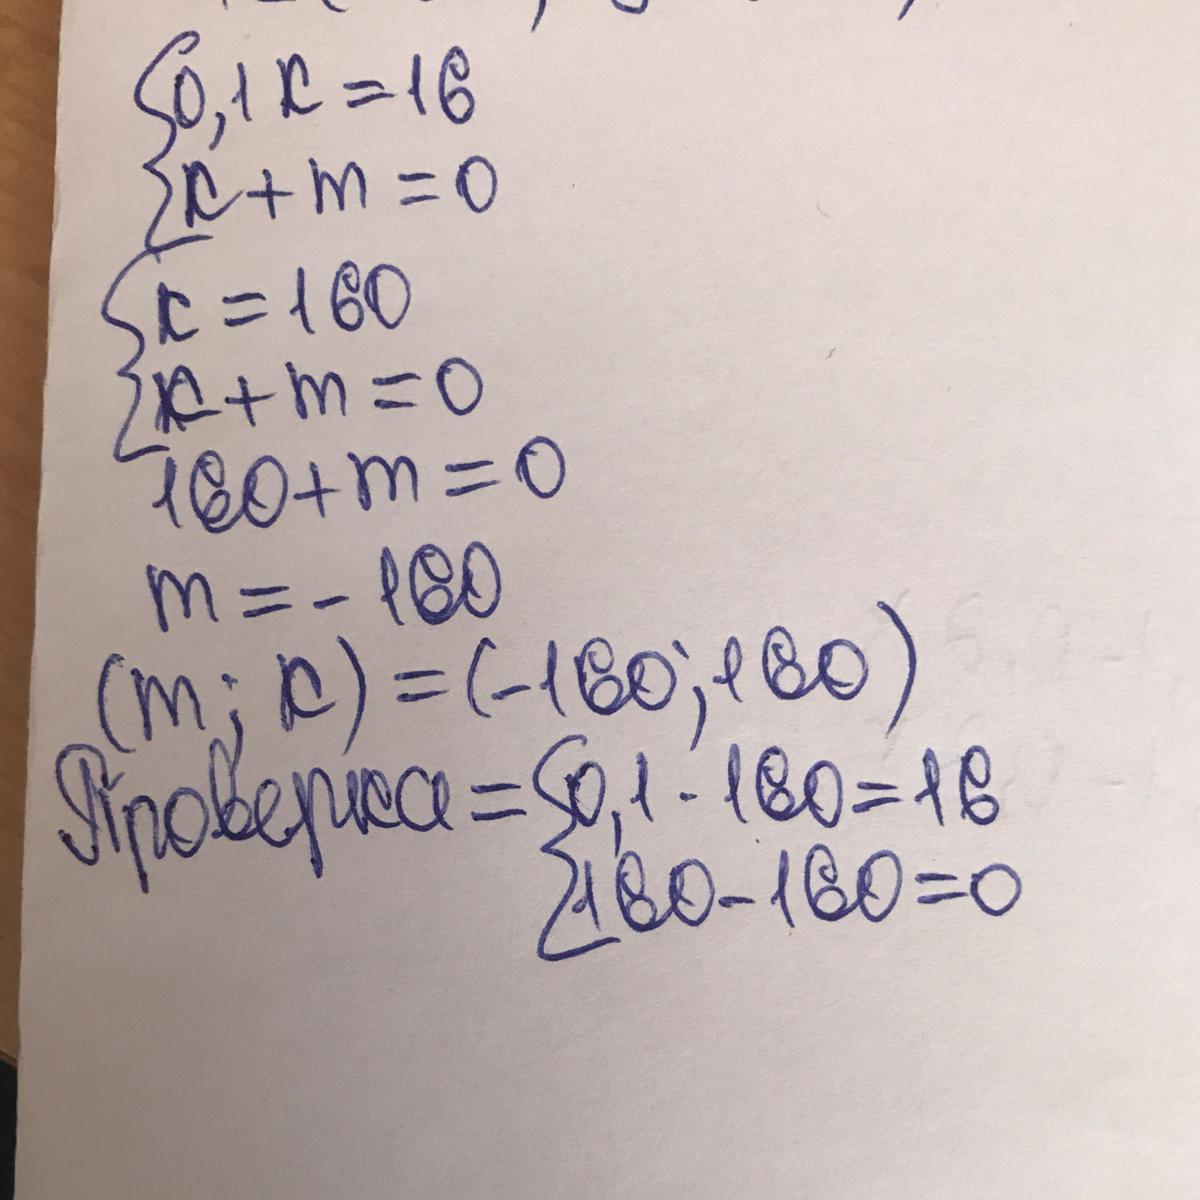 {0,1к=16
{к+m=0
{к=160
{к+m=0
160+m=0
m=-160
(m;к)=(-160;160)
Проверка={0,1·160=16
{160-160=0